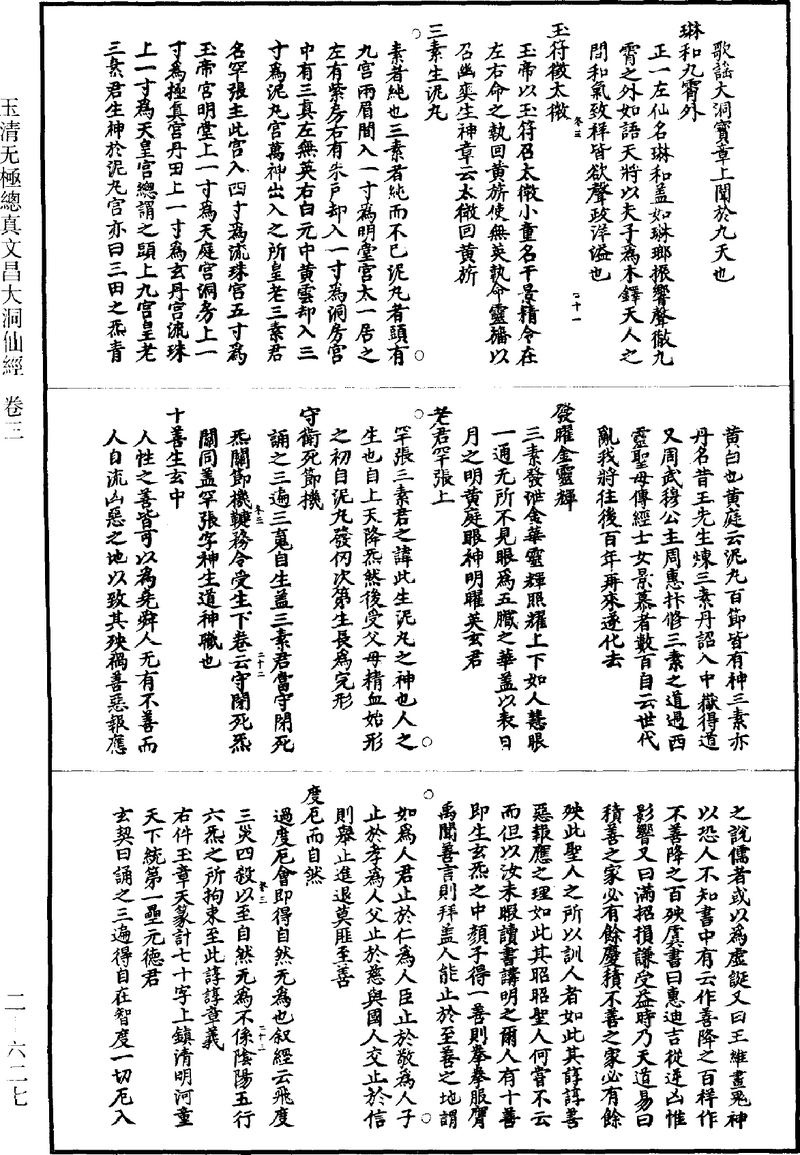 歌謠大洞寶章上聞於九天也
琳和九霄外
正一左仙名琳和蓋如琳瑯振響聲徹九
霄之外如語天將以夫子爲木鐸天人之
間和氣致祥皆欲聲政洋溢也
卷三
二十一
玉符徵太微
玉帝以玉符召太微小童名干景精令在
左右命之執回黄旂使無英執命靈旛以
召幽爽生神章云太微回黄旂
三素生泥丸
素者純也三素者純而不已泥丸者頭有
九宫兩眉間入一寸爲明堂宫太一居之
左有紫房右有朱戶却入一寸爲洞房宫
中有三真左無英右白元中黄雲却入三
寸爲泥丸宫萬神出入之所皇老三素君
名罕張主此宫入四寸爲流珠宫五寸爲
玉帝宫明堂上一寸爲天庭宫洞房上一
寸爲極真宫丹田上一寸爲玄丹宫流珠
上一寸爲天皇宫總謂之頭上九宫皇老
三素君生神於泥丸宫亦曰三田之炁青
黄白也黄庭云泥丸百節皆有神三素亦
丹名昔王先生煉三素丹詔入中嶽得道
又周武穆公主周惠抃修三素之道過西
靈聖母傳經士女景慕者數百自云世代
亂我將往後百年再來遂化去
發曜金靈輝
三素發泄金華靈輝照耀上下如人慧眼
一通无所不見眼爲五臟之華蓋以表日
月之明黄庭眼神明曜英玄君
老君罕張上
罕張三素君之諱此生泥丸之神也人之
生也自上天降炁然後受父母精血始形
之初自泥丸發仞次第生長爲完形
守衛死節機
誦之三遍三䰟自生蓋三素君當守閉死
炁關節機轄務令受生下卷云守閉死炁
卷三
二十二
關同蓋罕張字神生道神職也
十善生玄中
人性之善皆可以爲堯舜人无有不善而
人自流凶惡之地以致其殃禍善惡報應
之說儒者或以爲虛誕又曰王維畫鬼神
以恐人不知書中有云作善降之百祥作
不善降之百殃虞書曰惠迪吉從逆凶惟
影響又曰滿招損謙受益時乃天道易曰
積善之家必有餘慶積不善之家必有餘
殃此聖人之所以訓人者如此其諄諄善
惡報應之理如此其昭昭聖人何嘗不云
而但以汝未暇讀書講明之爾人有十善
即生玄炁之中顏子得一善則拳拳服膺
禹聞善言則拜蓋人能止於至善之地謂
如爲人君止於仁爲人臣止於敬爲人子
止於孝爲人父止於慈與國人交止於信
則舉止進退莫匪至善
度厄而自然
過度厄會即得自然无爲也叙經云飛度
三災四殺以至自然无爲不係陰陽五行
卷三
二十三
六炁之所拘束至此諄諄章義
右件玉章天篆計七十字上鎮清明河童
天下統第一壘元德君
玄契曰誦之三遍得自在智度一切厄入
玉清无極總真文昌大洞仙經 卷三
二–六二七